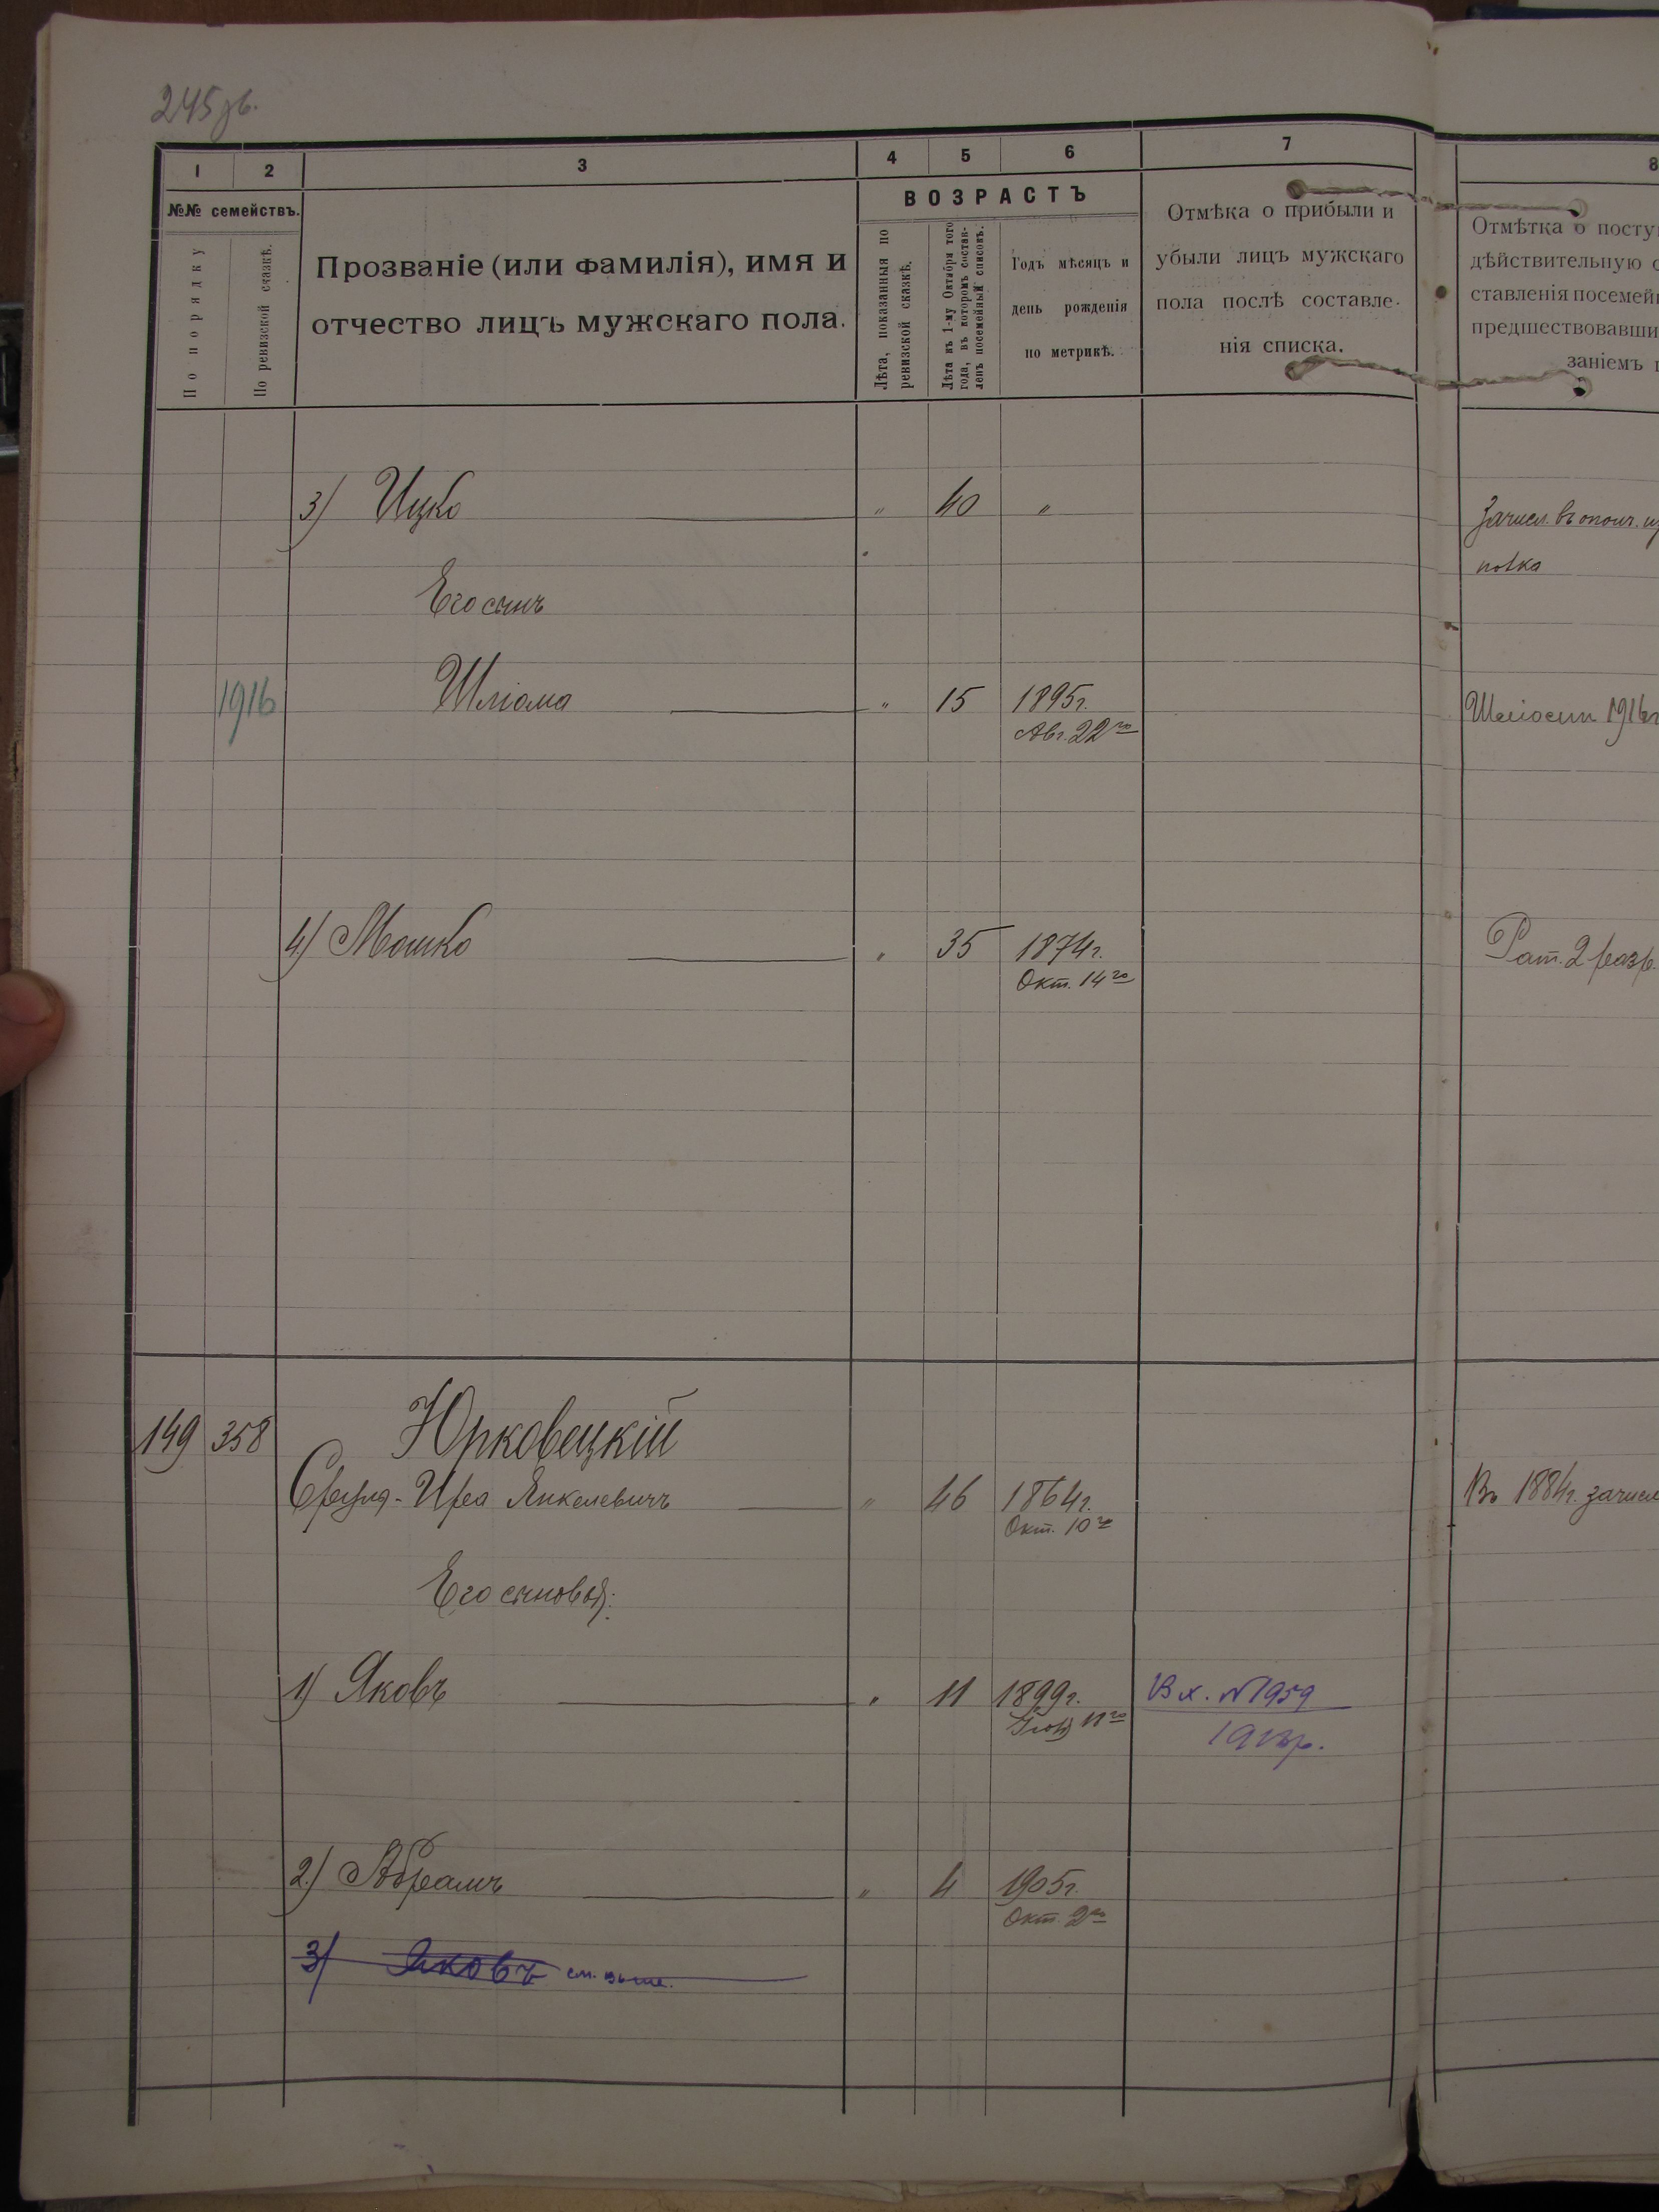 245зв.
1 2 3 4 5 6 7 8
№№ семействъ.
По порядку
По ревизской сказкѣ.
Прозваніе (или фамилія), имя и
отчество лицъ мужскаго пола.
ВОЗРАСТЪ
Лѣта, показанныя по
ревизской сказкѣ.
Лѣта къ 1-му Октября того
года, въ которомъ состав-
ленъ посемейный списокъ.
Годъ мѣсяцъ и
день рожденія
по метрикѣ.
Отмѣка о прибыли и
убыли лицъ мужскаго
пола послѣ составле-
нія списка.
Отмѣтка о посту
дѣйствительную с
ставленія посемей
предшествовавши
заніемъ
3) Ицко " 40 "
Зачисл. въ ополч.
Его сынъ
1916 Шліома " 15 1895г.
Авг. 22го
1916г
4) Мошко " 35 1874г.
Окт. 14го
Рат. 2 разр.
149 358 Юрковецкій
Сруля-Ира Янкелевичъ " 46 1864г.
Окт. 10го
Въ 1884г. зачисл
Его сыновья:
1) Яковъ " 11 1899г.
11го
Вх. №1959
2) Абрамъ " 4 1905г.
Окт. 2го
3) Яковъ см. выше.